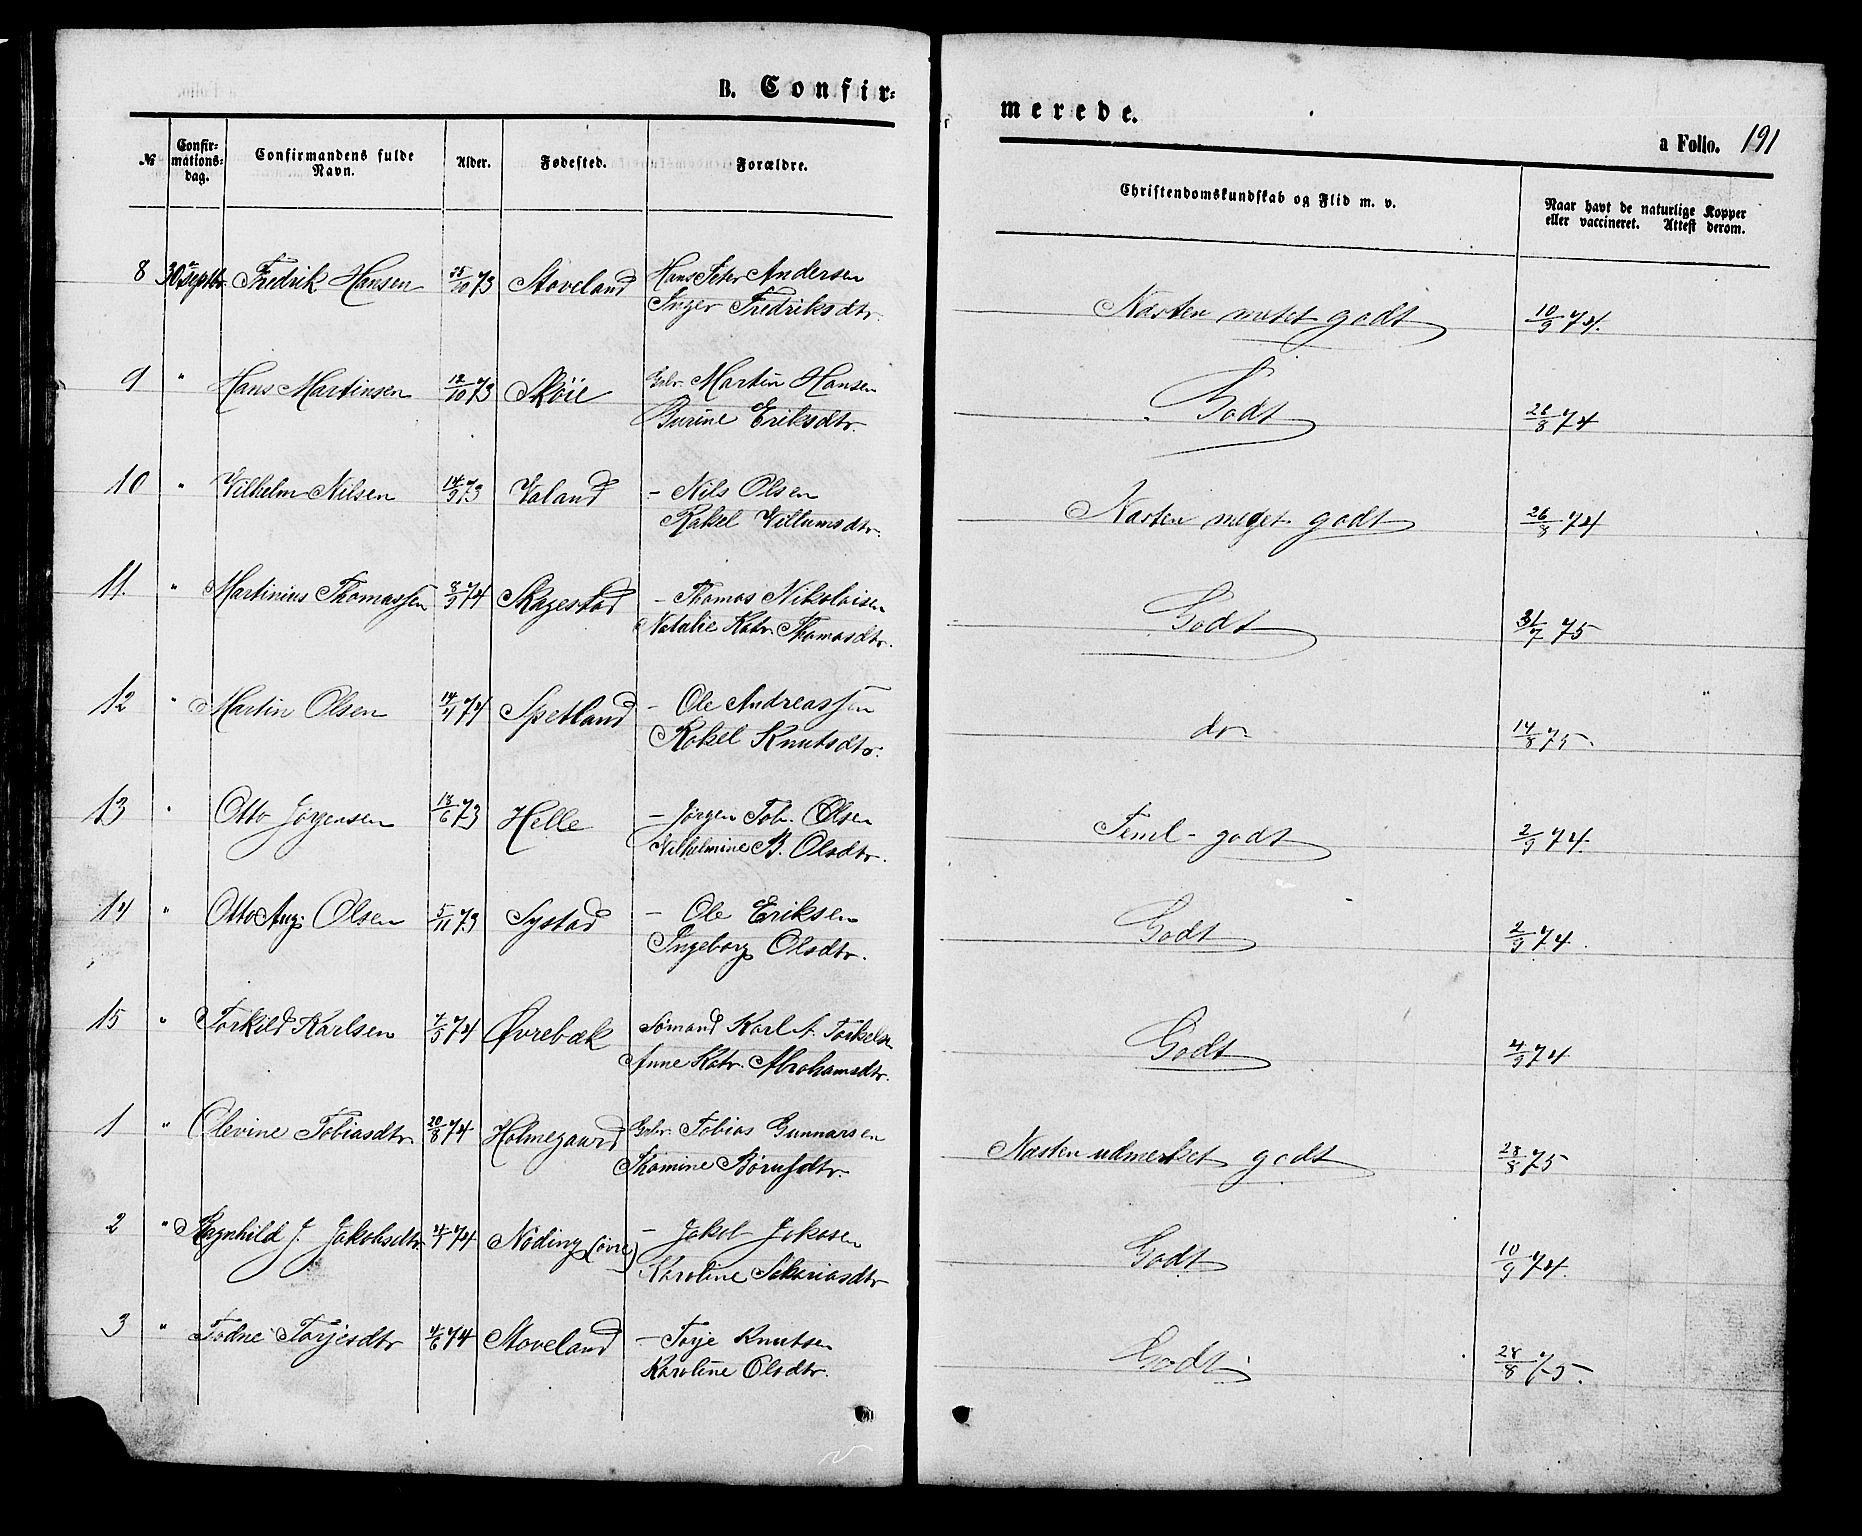 B. Confir-
merede.
a Folio. 191
№ Confir-mations-dag. Confirmandens fulde Navn. Alder. Fødested. Forældre. Christendomskundskab og Flid m. v. Naar havt de naturlige Kopper eller vaccineret. Attest derom.
8 30 septbr Fredrik Hansen 25/10 73 Stoveland Hans Peter Andersen Næsten meget godt 10/9 74.
Inger Fredriksdtr.
9 " Hans Martinsen 12/10 73 Skøie Gbr. Martin Hansen Godt 26/8 74
Eriksdtr.
10 " Vilhelm Nilsen 14/9 73 Valand - Nils Olsen Næsten meget godt 26/8 74
Rakel Villumsdtr.
11. " Martinius Thomassen 8/9 74 Skagestad - Thomas Nikolaisen Godt 31/7 75
Natalie Katr. Thomasdtr.
12 " Martin Olsen 14/4 74 Spetland - Ole Andreassen do 14/8 75.
Rakel Knutsdtr.
13 " Otto Jørgensen 18/6 73 Helle - Jørgen Tob. Olsen Teml- godt 2/9 74.
Vilhelmine B. Olsdtr.
14 " Otto Aug. Olsen 5/11 73 Systad - Ole Eriksen Godt 2/9 74.
Ingeborg Olsdtr.
15 " Torkild Karlsen 74 Øvrebæk Sømand Karl A. Torkelsen Godt 4/9 74
Anne Katr. Abrahamsdtr.
1 " Olevine Tobiasdtr 20/8 74 Holmegaard Gbr. Tobias Gunnarsen Næsten udmerket godt 28/8 75
Thomine
2 " Ragnhild J. Jakobsdtr 74 Nøding (øvre) - Jakob Godt 10/9 74.
Karoline Sakariasdtr
3 " Todne Torjesdtr 4/6 74 Stoveland - Torje Knutsen Godt 28/8 75.
Karoline Olsdtr.